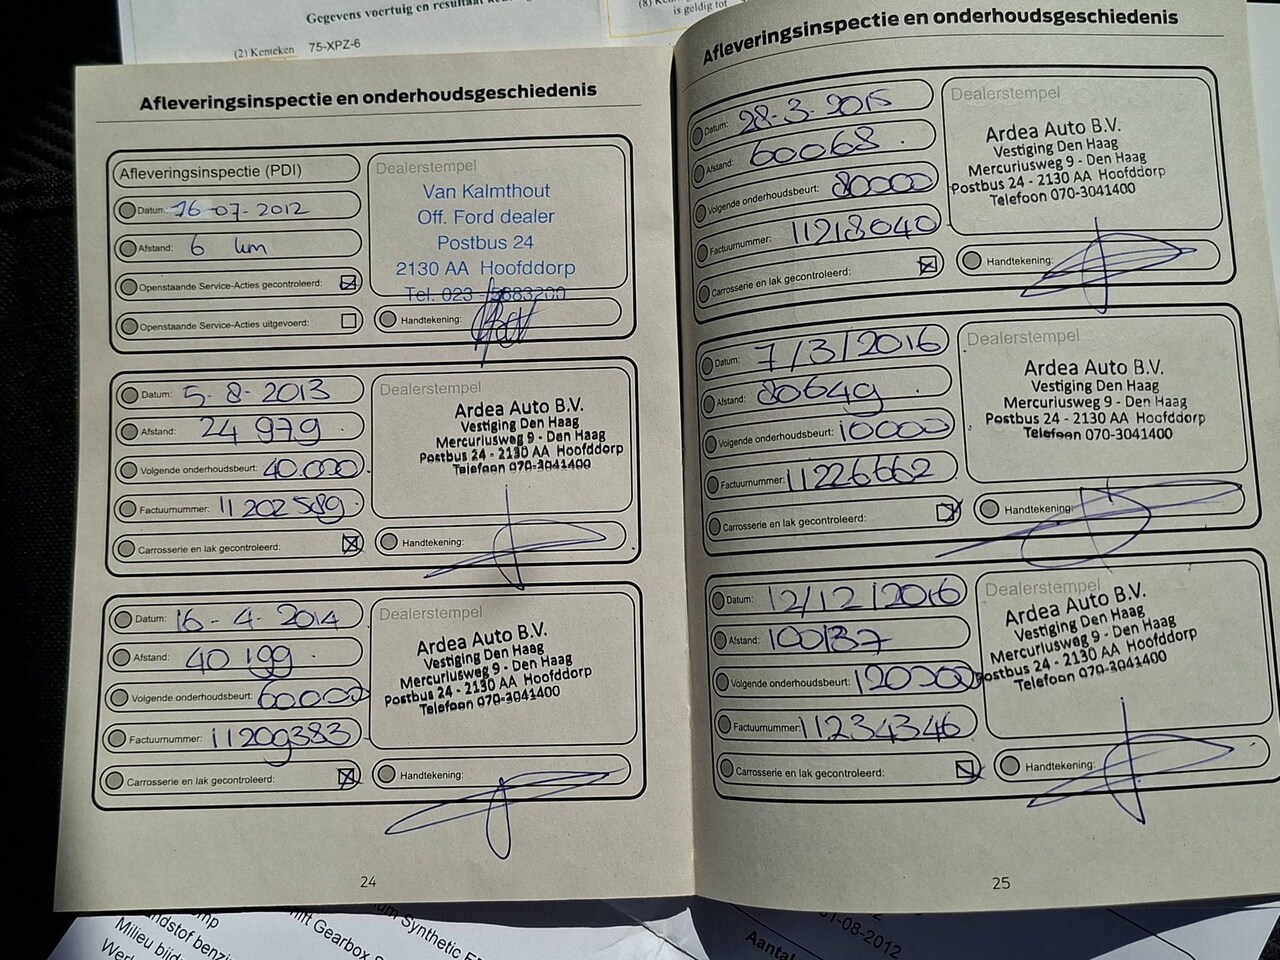 Gegevens voertuig en resultaat
is geldig tot
(2) Kenteken 75-XPZ-6
Afleveringsinspectie en onderhoudsgeschiedenis
Afleveringsinspectie (PDI)
Datum: 16-07-2012
Afstand: 6 km
Openstaande Service-Acties gecontroleerd:
Openstaande Service-Acties uitgevoerd:
Dealerstempel
Van Kalmthout
Off. Ford dealer
Postbus 24
2130 AA Hoofddorp
Tel. 023 - 5683200
Handtekening:
Datum: 5-8-2013
Afstand: 24 979
Volgende onderhoudsbeurt: 40.000
Factuurnummer: 11202589
Carrosserie en lak gecontroleerd:
Dealerstempel
Ardea Auto B.V.
Vestiging Den Haag
Mercuriusweg 9 - Den Haag
Postbus 24 - 2130 AA Hoofddorp
Telefoon 070-3041400
Handtekening:
Datum: 16-4-2014
Afstand: 40 199
Volgende onderhoudsbeurt: 60.000
Factuurnummer: 11209383
Carrosserie en lak gecontroleerd:
Dealerstempel
Ardea Auto B.V.
Vestiging Den Haag
Mercuriusweg 9 - Den Haag
Postbus 24 - 2130 AA Hoofddorp
Telefoon 070-3041400
Handtekening:
24
Afleveringsinspectie en onderhoudsgeschiedenis
Datum: 28-3-2015
Afstand: 60068
Volgende onderhoudsbeurt: 80000
Factuurnummer: 11218040
Carrosserie en lak gecontroleerd:
Dealerstempel
Ardea Auto B.V.
Vestiging Den Haag
Mercuriusweg 9 - Den Haag
Postbus 24 - 2130 AA Hoofddorp
Telefoon 070-3041400
Handtekening:
Datum: 7/3/2016
Afstand: 80649
Volgende onderhoudsbeurt: 10000
Factuurnummer: 11226662
Carrosserie en lak gecontroleerd:
Dealerstempel
Ardea Auto B.V.
Vestiging Den Haag
Mercuriusweg 9 - Den Haag
Postbus 24 - 2130 AA Hoofddorp
Telefoon 070-3041400
Handtekening:
Datum: 12/12/2016
Afstand: 100137
Volgende onderhoudsbeurt: 120000
Factuurnummer: 11234346
Carrosserie en lak gecontroleerd:
Dealerstempel
Ardea Auto B.V.
Vestiging Den Haag
Mercuriusweg 9 - Den Haag
Postbus 24 - 2130 AA Hoofddorp
Telefoon 070-3041400
Handtekening:
25
Synthetic
Gearbox
Milieu
01-08-2012